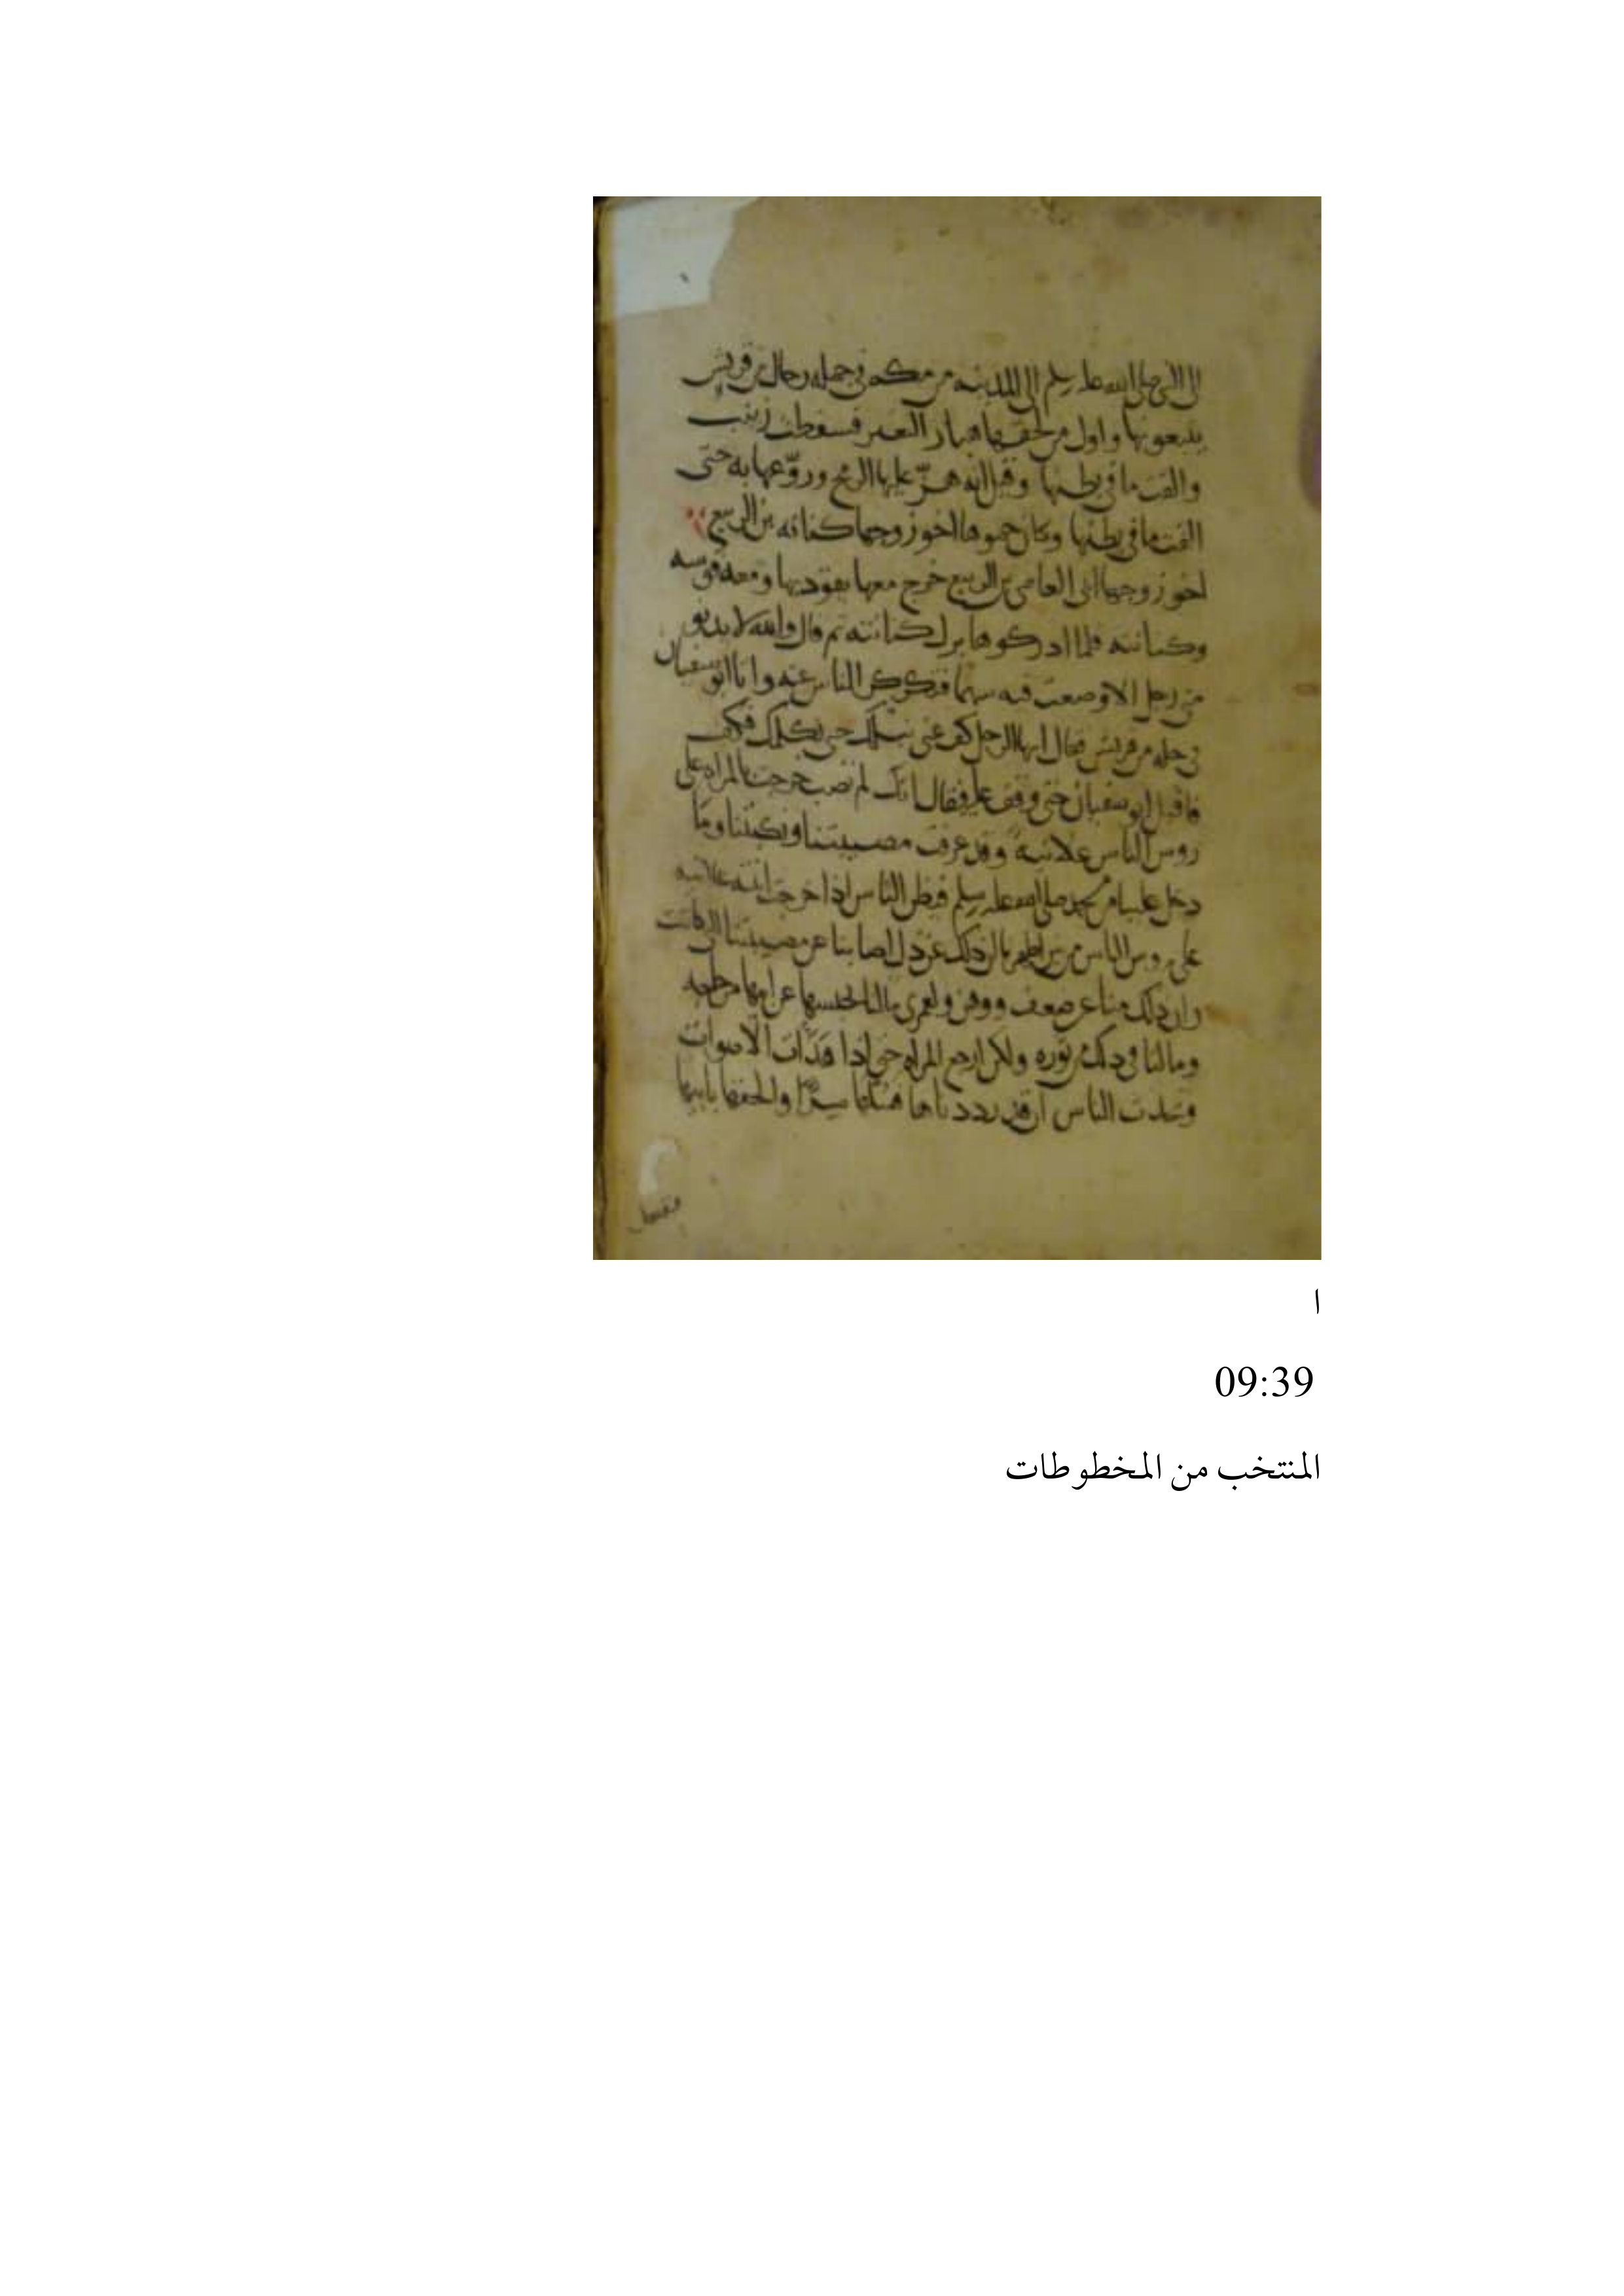 الى النبي صلى الله عليه وسلم الى المدينه من مكه في جمله رجال من قريش
يتبعونها واول من لحق بها هبار فسقطت زينب
والقت ما في بطنها وقيل انه هز عليها الرمح وروّعها به حتى
القت ما في بطنها وكان حموها اخو زوجها كنانه بن الربيع
اخو زوجها ابى العاص بن الربيع خرج معها يقود بها ومعه قوسه
وكنانته فلما ادركوها برك كنانته ثم قال والله لا يدنو
مني رجل الا وضعت فيه سهما فتكركر الناس عنه واتا ابو سفيان
في جله من قريش فقال ايها الرجل كف عنى نبلك حتى نكلمك فكف
فاقبل ابو سفيان حتى وقف عليه فقال انك لم تصب خرجت بالمراه على
روس الناس علانيةً وقد عرفت مصيبتنا ونكبتنا وما
دخل علينا من محمد صلى الله عليه وسلم فيظن الناس اذا خرجت ابنته علانيه
على روس الناس من بين اظهرنا ان ذلك عن ذل اصابنا عن مصيبتنا التي كانت
وان ذلك منا عن ضعف ووهن ولعمرى ما لنا لحبسها عن ابيها من حاجه
وما لنا في ذلك من ثوره ولكن ارجع المراه حتى اذا هدَات الاصوات
وتحدث الناس ان قد رددناها فسلها سرًّا والحقها بابيها
ا
09:39
المنتخب من المخطوطات